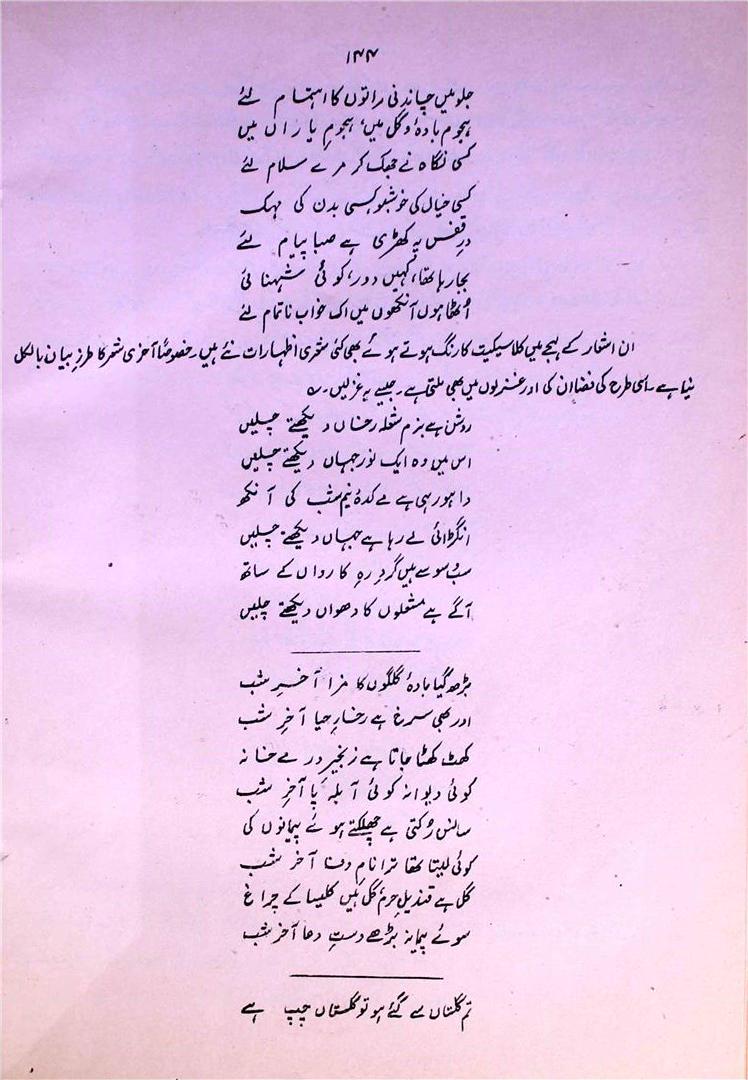 ۱۴۴
جلو میں چاندنی راتوں کا اہتمام لئے
ہجوم بادۂ و گل میں، ہجومِ یاراں میں
کسی نگاہ نے جھک کر مرے سلام لئے
کسی خیال کی خوشبو کسی بدن کی مہک
درِ قفس پہ کھڑی ہے صبا پیام لئے
بجا رہا تھا، کہیں دور، کوئی شہنائی
اُٹھا ہوں آنکھوں میں اک خواب ناتمام لئے
ان اشعار کے لہجے میں کلاسیکیت کا رنگ ہوتے ہوئے بھی کئی شعری اظہارات نئے ہیں۔ خصوصاً آخری شعر کا طرزِ بیان بالکل
نیا ہے۔ اسی طرح کی فضا ان کی اور غزلوں میں بھی ملتی ہے۔ جیسے یہ غزلیں۔ ؎
روشن ہے بزم شعلہ رخاں دیکھتے چلیں
اس میں وہ ایک نور جہاں دیکھتے چلیں
وا ہو رہی ہے مے کدۂ نیم شب کی آنکھ
انگڑائی لے رہا ہے جہاں دیکھتے چلیں
سرگوشیوں
آگے ہے مشعلوں کا دھواں دیکھتے چلیں
بڑھ گیا بادۂ گلگوں کا مزا آخرِ شب
اور بھی سرخ ہے رخسارِ حیا آخرِ شب
کھٹ کھٹا جاتا ہے زنجیرِ درِ مے خانہ
کوئی دیوانہ کوئی آبلہ پا آخرِ شب
سانس رُکتی ہے چھلکتے ہوئے پیمانوں کی
کوئی لیتا تھا ترا نامِ وفا آخر شب
گل ہے قندیلِ حرم، گل ہیں کلیسا کے چراغ
سوئے پیمانہ بڑھے دستِ دعا آخر شب
تم گلستاں سے گئے ہو تو گلستاں چپ ہے